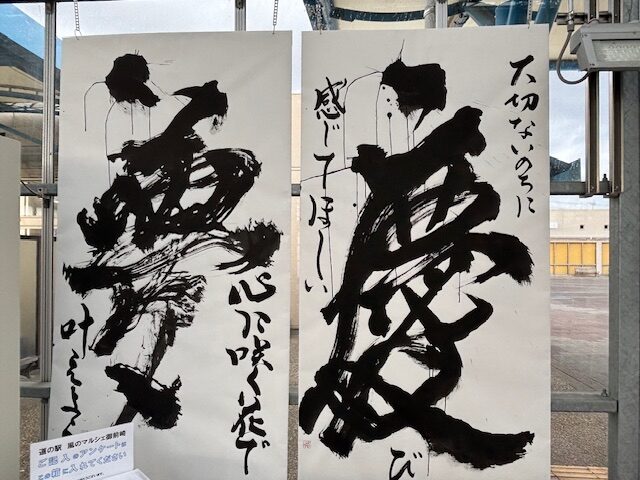 大切ないのちに
慶び
感じてほしい
心に咲く花で
夢
叶えよう
道の駅 風のマルシェ御前崎
ご記入のアンケートは
この箱に入れてください